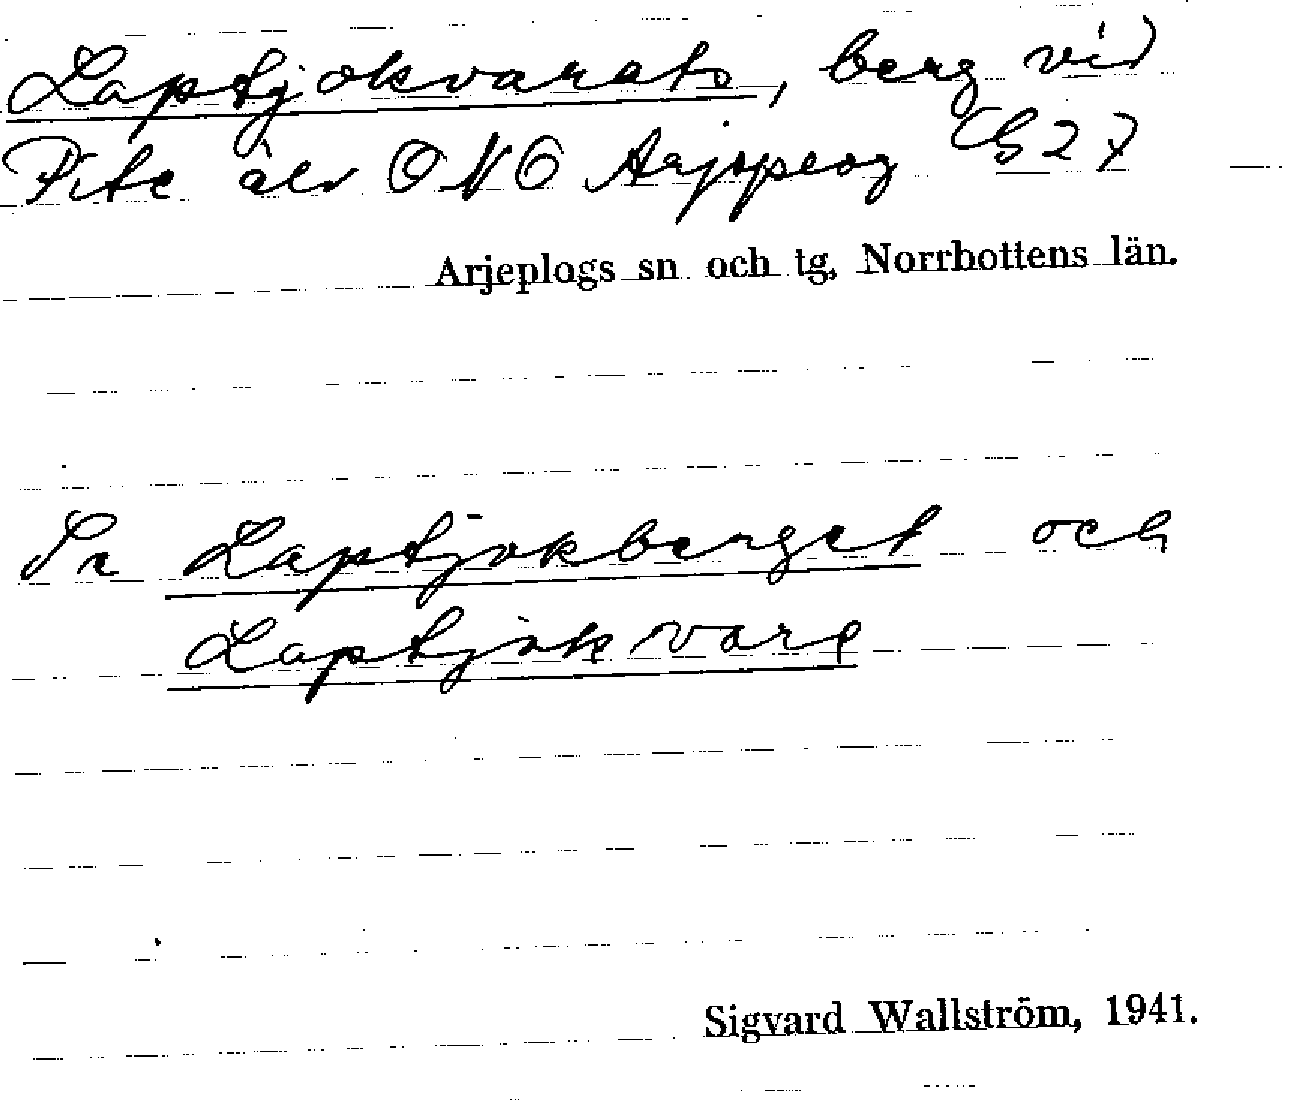 Laptjokvarats, berg vid
Pite älv ONO Arjepeog G27
Arjeplogs sn och tg. Norrbottens län.
Se Laptjokberget och
Laptjokvare
Sigvard Wallström, 1941.